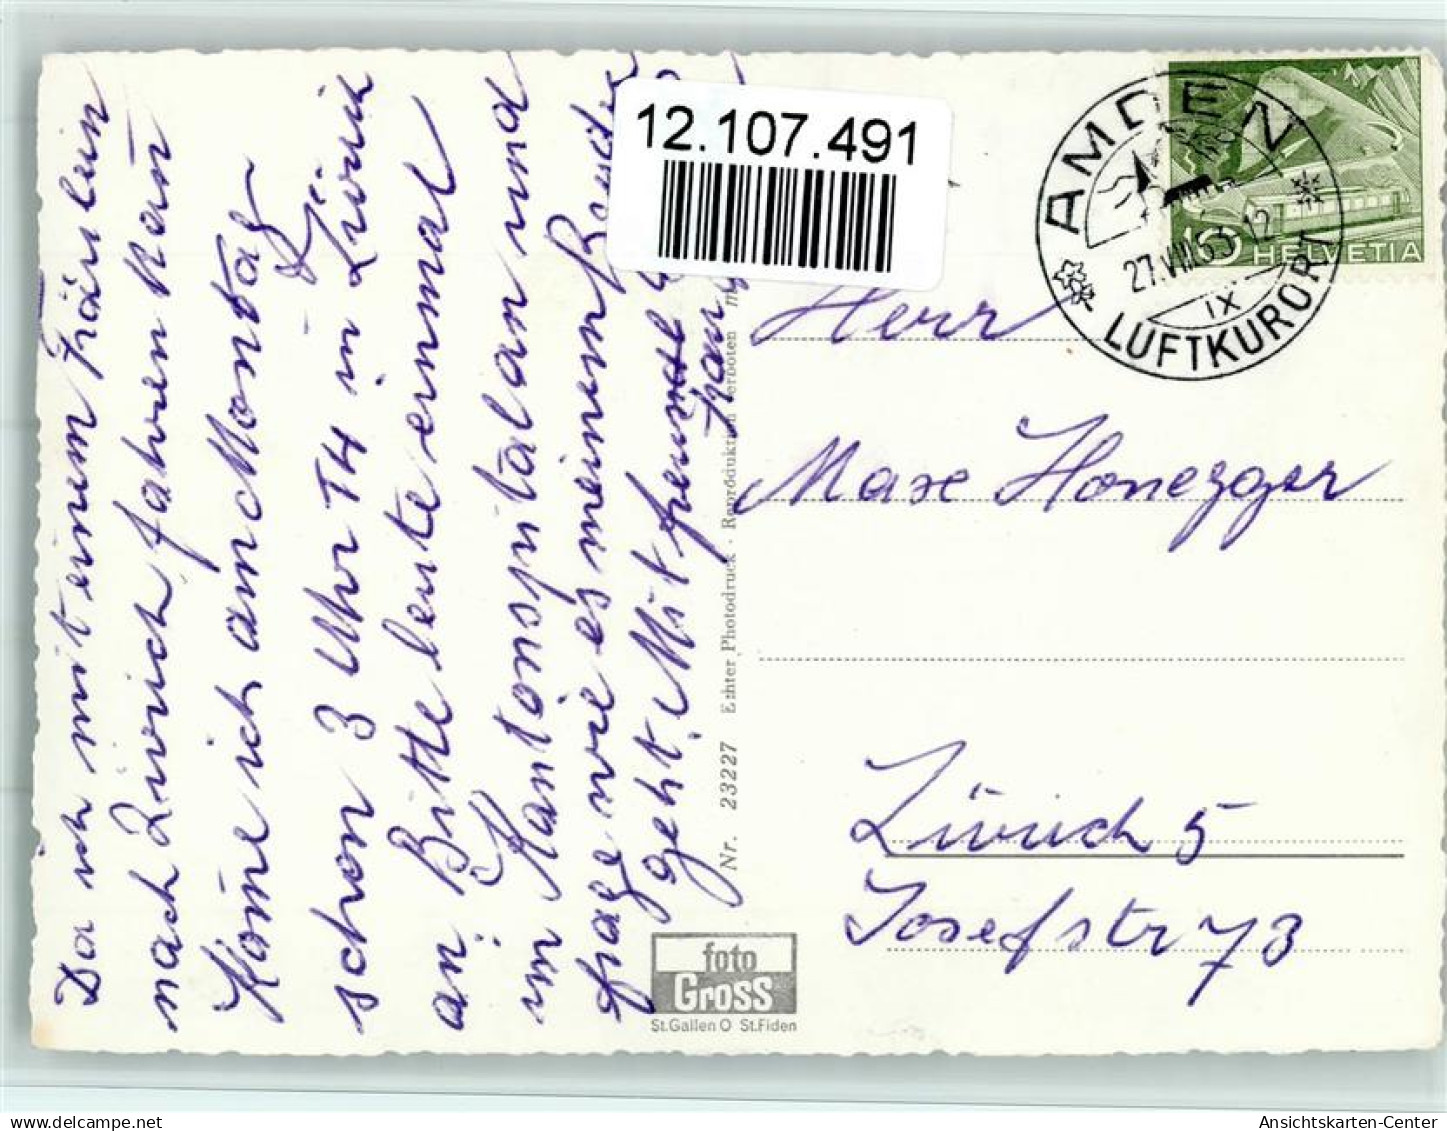 Da ich mit einem Fräulein
nach Zürich fahren kan̄
Kom̄e ich am Montag
schon 3 Uhr 14 in Zürich
an. Bitte leute einmal
im Kantonspital an und
frage wie es meinem Bruder
geht. Mit freund
12.107.491
Nr. 23227 Echter Photodruck - Reproduktion verboten
foto
Gross
St.Gallen O St.Fiden
AMDEN
27.VIII.63-12
IX
LUFTKURORT
10 HELVETIA
Herr
Max Honegger
Zürich 5
Josefstr 73
Ansichtskarten-Center